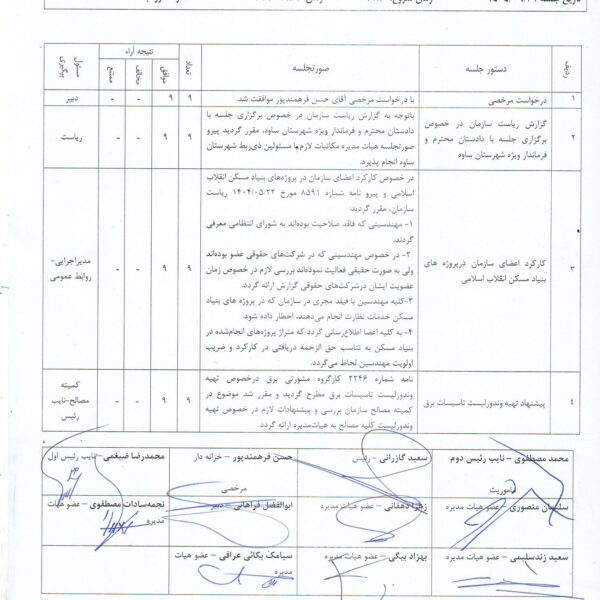 ردیف
دستور جلسه
صورتجلسه
تعداد
نتیجه آراء
موافق
مخالف
ممتنع
مسئول
پیگیری
۱
درخواست مرخصی
با درخواست مرخصی آقای حسن فرهمندپور موافقت شد.
۹
۹
-
-
دبیر
۲
گزارش ریاست سازمان در خصوص
برگزاری جلسه با دادستان محترم و
فرماندار ویژه شهرستان ساوه
باتوجه به گزارش ریاست سازمان در خصوص برگزاری جلسه با
دادستان محترم و فرماندار ویژه شهرستان ساوه، مقرر گردید پیرو
صورتجلسه هیات مدیره مکاتبات لازم با مسئولین ذی‌ربط شهرستان
ساوه انجام پذیرد.
۹
۹
-
-
ریاست
۳
کارکرد اعضای سازمان درپروژه های
بنیاد مسکن انقلاب اسلامی
در خصوص کارکرد اعضای سازمان در پروژه‌های بنیاد مسکن انقلاب
اسلامی و پیرو نامه شماره ۸۵۹۱ مورخ ۱۴۰۴/۰۵/۲۲ ریاست
سازمان، مقرر گردید:
۱- مهندسینی که فاقد صلاحیت بوده‌اند به شورای انتظامی معرفی
گردند.
۲- در خصوص مهندسینی که در شرکت‌های حقوقی عضو بوده‌اند
ولی به صورت حقیقی فعالیت نموده‌اند بررسی لازم در خصوص زمان
عضویت ایشان درشرکت‌های حقوقی گزارش ارائه گردد.
۳-کلیه مهندسین با فیلد مجری در سازمان که در پروژه های بنیاد
مسکن خدمات نظارت انجام می‌دهند، اخطار داده شود.
۴- به کلیه اعضا اطلاع‌رسانی گردد که متراژ پروژه‌های انجام‌شده در
بنیاد مسکن به تناسب حق الزحمه دریافتی در کارکرد و ضریب
اولویت مهندسین لحاظ می‌گردد.
۹
۹
-
-
مدیراجرایی-
روابط عمومی
۴
پیشنهاد تهیه وندورلیست تاسیسات برق
نامه شماره ۲۲۴۶ کارگروه مشورتی برق درخصوص تهیه
وندورلیست تاسیسات برق مطرح گردید و مقرر شد موضوع در
کمیته مصالح سازمان بررسی و پیشنهادات لازم در خصوص تهیه
وندورلیست کلیه مصالح به هیات‌مدیره ارائه گردد.
۹
۹
-
-
کمیته
مصالح-نایب
رئیس
محمد مصطفوی – نایب رئیس دوم
ماموریت
سعید گازرانی - رئیس
حسن فرهمندپور – خزانه دار
مرخصی
محمدرضا ضیغمی – نایب رئیس اول
سلمان منصوری – عضو هیات مدیره
زهرا دهقانی – عضو هیات مدیره
ابوالفضل فراهانی – دبیر
نجمه‌سادات مصطفوی – عضو هیات
مدیره
سعید زندسلیمی – عضو هیات مدیره
بهزاد بیگی – عضو هیات مدیره
سیامک بکائی عراقی – عضو هیات
مدیره